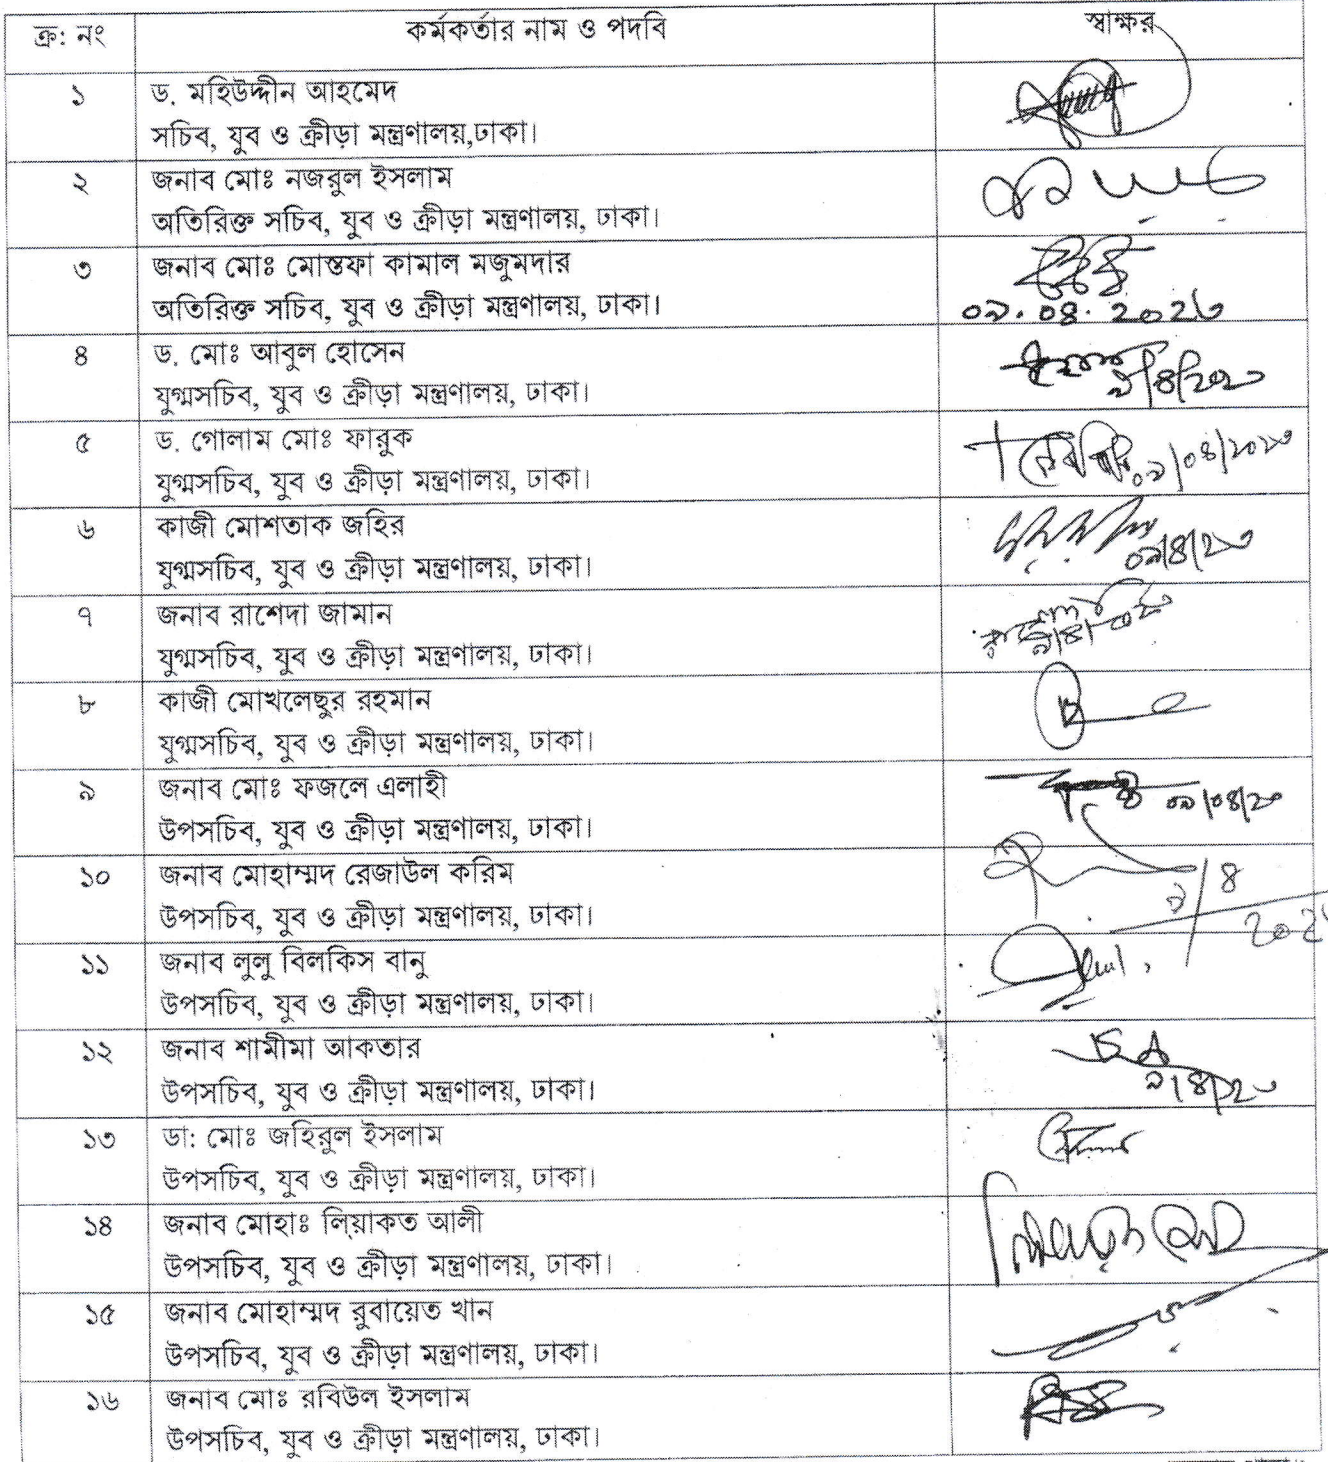 ক্র: নং কর্মকর্তার নাম ও পদবি স্বাক্ষর
১ ড. মহিউদ্দীন আহমেদ
সচিব, যুব ও ক্রীড়া মন্ত্রণালয়,ঢাকা।
২ জনাব মোঃ নজরুল ইসলাম
অতিরিক্ত সচিব, যুব ও ক্রীড়া মন্ত্রণালয়, ঢাকা।
৩ জনাব মোঃ মোস্তফা কামাল মজুমদার
অতিরিক্ত সচিব, যুব ও ক্রীড়া মন্ত্রণালয়, ঢাকা।
০৯.০৪.২০২৩
৪ ড. মোঃ আবুল হোসেন
যুগ্মসচিব, যুব ও ক্রীড়া মন্ত্রণালয়, ঢাকা।
৫ ড. গোলাম মোঃ ফারুক
যুগ্মসচিব, যুব ও ক্রীড়া মন্ত্রণালয়, ঢাকা।
০৯/০৪/২০২৩
৬ কাজী মোশতাক জহির
যুগ্মসচিব, যুব ও ক্রীড়া মন্ত্রণালয়, ঢাকা।
০৯/৪/২৩
৭ জনাব রাশেদা জামান
যুগ্মসচিব, যুব ও ক্রীড়া মন্ত্রণালয়, ঢাকা।
৮ কাজী মোখলেছুর রহমান
যুগ্মসচিব, যুব ও ক্রীড়া মন্ত্রণালয়, ঢাকা।
৯ জনাব মোঃ ফজলে এলাহী
উপসচিব, যুব ও ক্রীড়া মন্ত্রণালয়, ঢাকা।
০৯/০৪/২৩
১০ জনাব মোহাম্মদ রেজাউল করিম
উপসচিব, যুব ও ক্রীড়া মন্ত্রণালয়, ঢাকা।
১১ জনাব লুলু বিলকিস বানু
উপসচিব, যুব ও ক্রীড়া মন্ত্রণালয়, ঢাকা।
১২ জনাব শামীমা আকতার
উপসচিব, যুব ও ক্রীড়া মন্ত্রণালয়, ঢাকা।
৯/৪/২৩
১৩ ডা: মোঃ জহিরুল ইসলাম
উপসচিব, যুব ও ক্রীড়া মন্ত্রণালয়, ঢাকা।
১৪ জনাব মোহাঃ লিয়াকত আলী
উপসচিব, যুব ও ক্রীড়া মন্ত্রণালয়, ঢাকা।
১৫ জনাব মোহাম্মদ রুবায়েত খান
উপসচিব, যুব ও ক্রীড়া মন্ত্রণালয়, ঢাকা।
১৬ জনাব মোঃ রবিউল ইসলাম
উপসচিব, যুব ও ক্রীড়া মন্ত্রণালয়, ঢাকা।